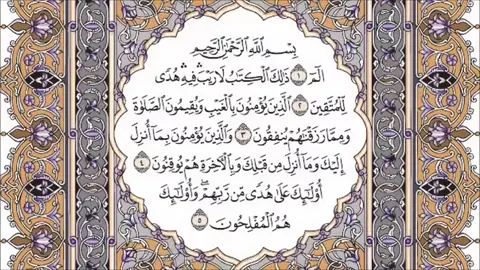 بِسْمِ اللَّهِ الرَّحْمَٰنِ الرَّحِيمِ
الٓمٓ ۝١ ذَٰلِكَ الْكِتَٰبُ لَا رَيْبَ ۛ فِيهِ ۛ هُدًى
لِّلْمُتَّقِينَ ۝٢ الَّذِينَ يُؤْمِنُونَ بِالْغَيْبِ وَيُقِيمُونَ الصَّلَوٰةَ
وَمِمَّا رَزَقْنَٰهُمْ يُنفِقُونَ ۝٣ وَالَّذِينَ يُؤْمِنُونَ بِمَآ أُنزِلَ
إِلَيْكَ وَمَآ أُنزِلَ مِن قَبْلِكَ وَبِالْءَاخِرَةِ هُمْ يُوقِنُونَ ۝٤
أُولَٰٓئِكَ عَلَىٰ هُدًى مِّن رَّبِّهِمْ ۖ وَأُولَٰٓئِكَ
هُمُ الْمُفْلِحُونَ ۝٥